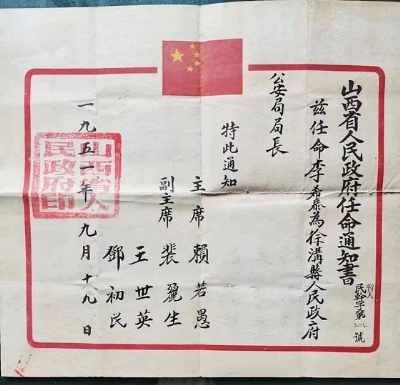 山西省人民政府任命通知書
民幹字第
號
茲任命李希泰為徐溝縣人民政府
公安局局長
特此通知
主席 賴若愚
副主席 裴麗生
王世英
鄧初民
一九五一年九月十九日
山西省人
民政府印